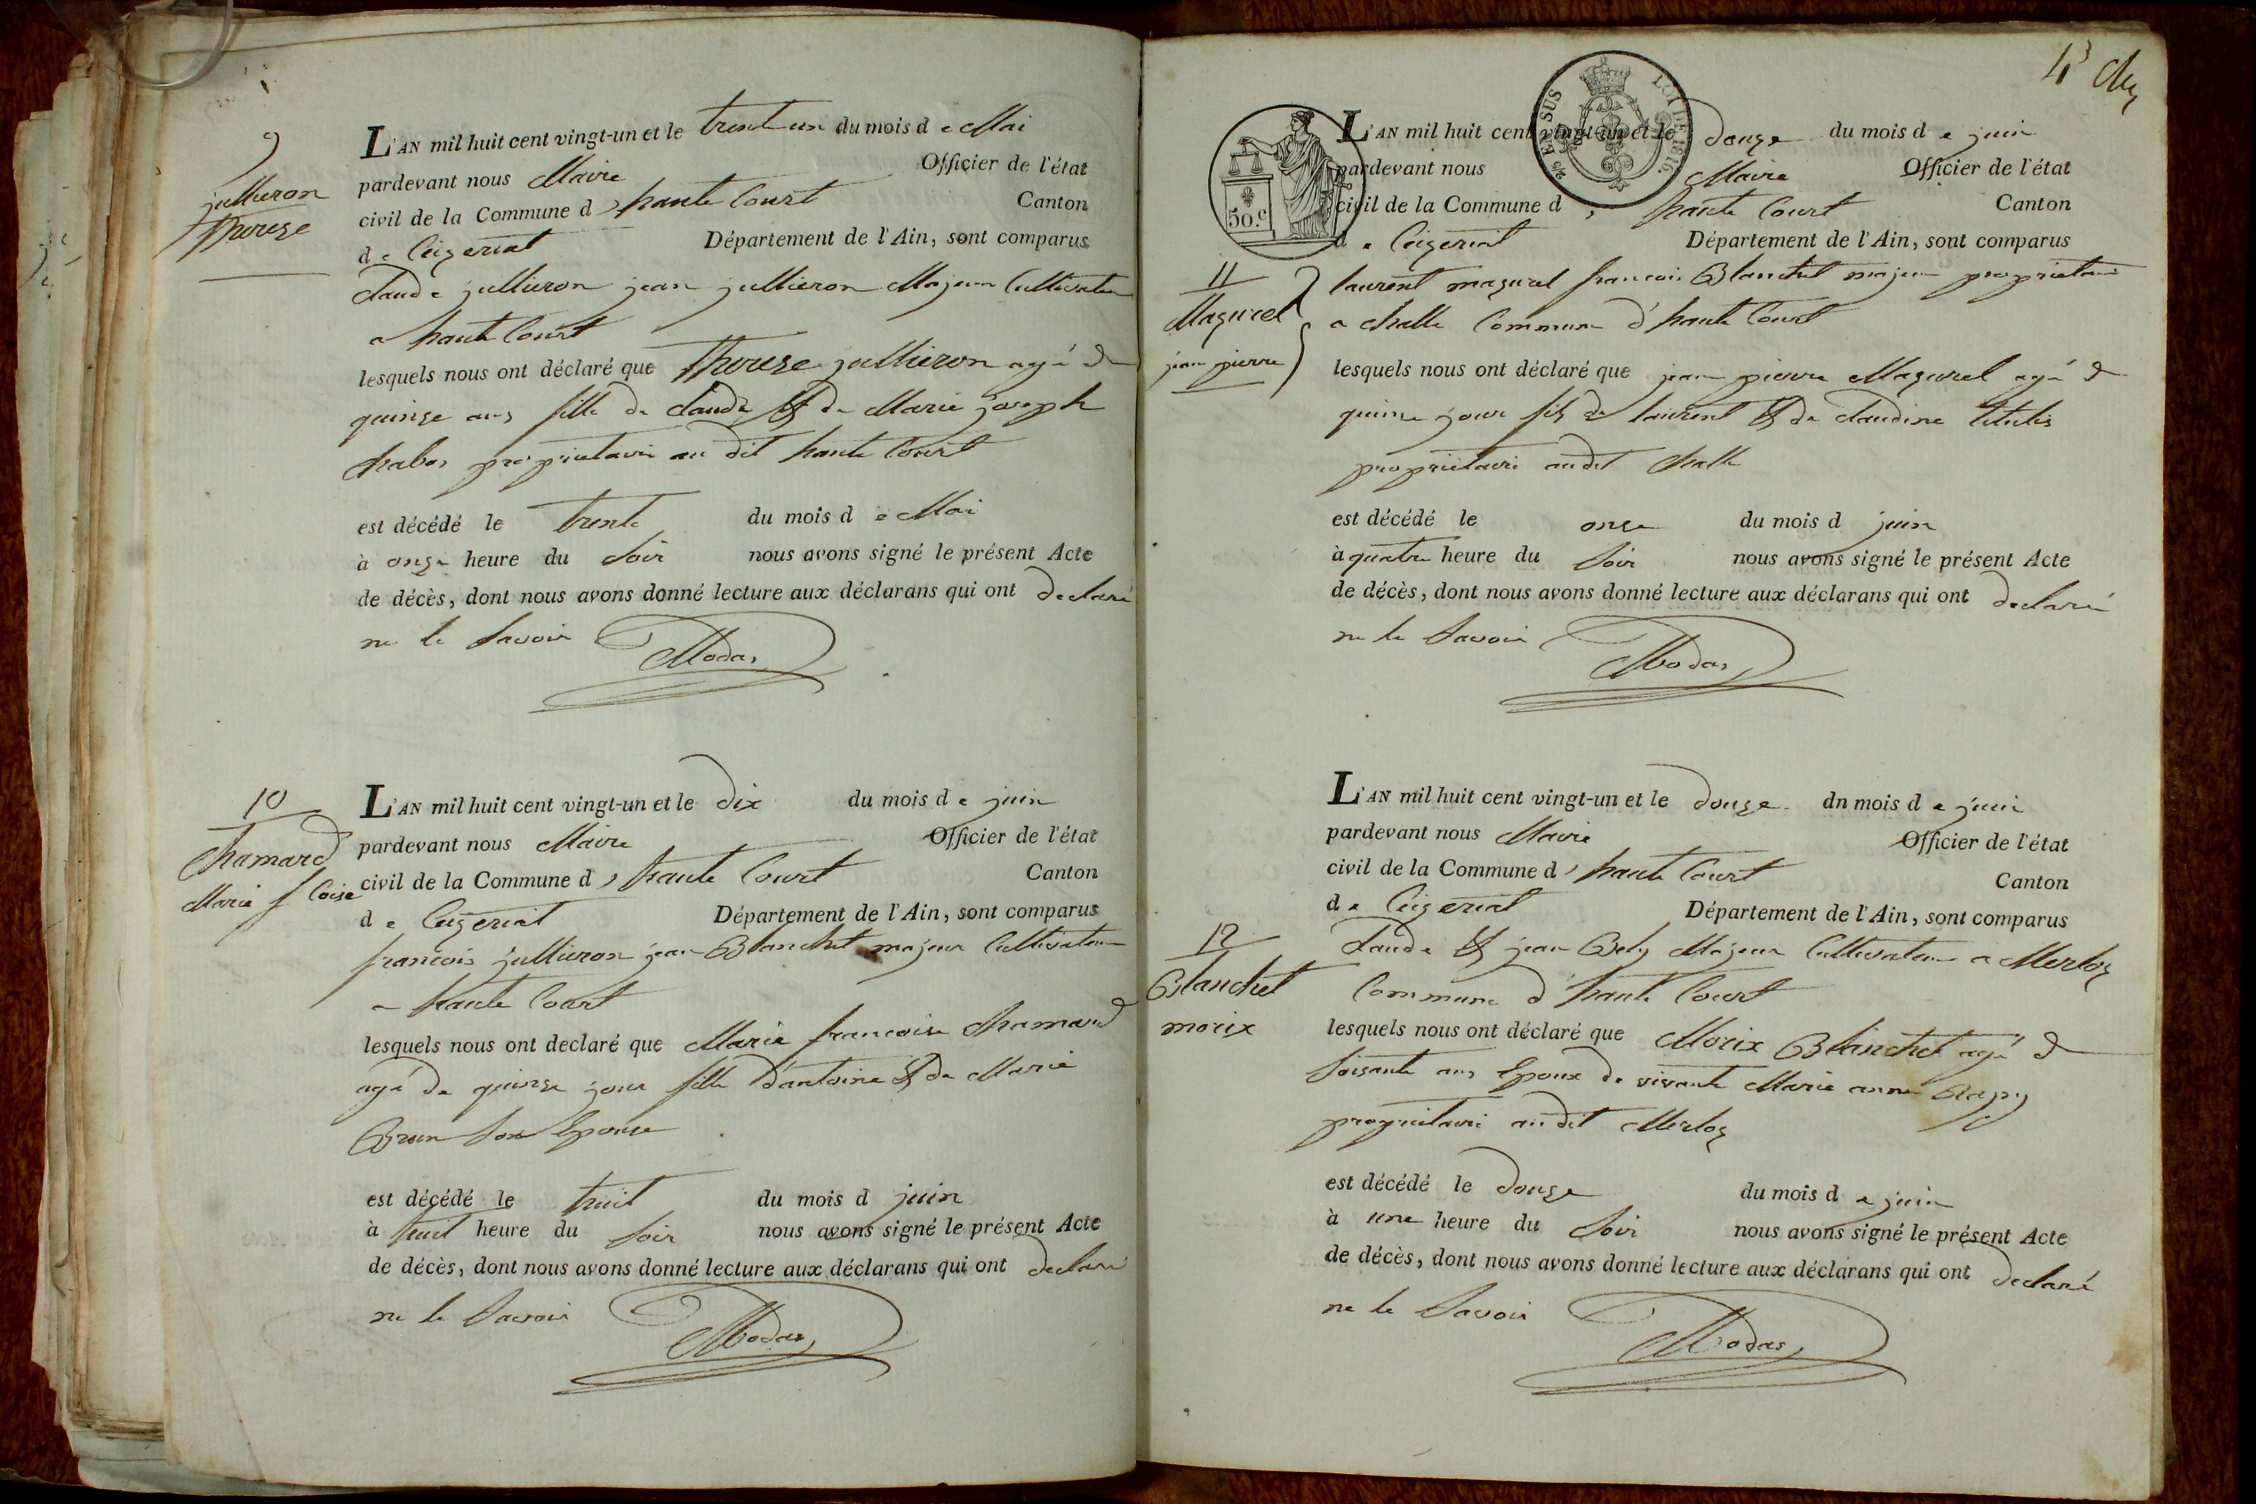 9
jullieron
therese
L'AN mil huit cent vingt-un et le trente un du mois d e Mai
pardevant nous Maire Officier de l'état
civil de la Commune d' haute Court Canton
d e Ceizeriat Département de l'Ain, sont comparus
Claude jullieron jean jullieron Majeur Cultivateur
a haute Court
lesquels nous ont déclaré que therese jullieron agé de
quinze ans fille de Claude & de Marie joseph
chabos proprietaire au dit haute Court
est décédé le trente du mois d e Mai
à onze heure du Soir nous avons signé le présent Acte
de décès, dont nous avons donné lecture aux déclarans qui ont declaré
ne le Savoir Modas
10
Chamard
Marie f Coise
L'AN mil huit cent vingt-un et le dix du mois d e juin
pardevant nous Maire Officier de l'état
civil de la Commune d' haute Court Canton
d e Ceizeriat Département de l'Ain, sont comparus
francois jullieron jean Blanchet majeur Cultivateur
a haute Court
lesquels nous ont declaré que Marie francoise Chamard
agé de quinze jour fille d'antoine & de Marie
Brun Son Epouse
est décédé le huit du mois d juin
à huit heure du Soir nous avons signé le présent Acte
de décès, dont nous avons donné lecture aux déclarans qui ont declaré
ne le Savoir Modas
EN SUS
LOI DE 1816.
50.c
L'AN mil huit cent vingt-un et le douze du mois d e juin
pardevant nous Maire Officier de l'état
civil de la Commune d' haute Court Canton
d e Ceizeriat Département de l'Ain, sont comparus
11
Mazurel
jean pierre
laurent mazurel francois Blanchet majeur proprietaire
a challe Commune d'haute Court
lesquels nous ont déclaré que jean pierre Mazurel agé de
quinze jour fils de laurent & de Claudine
proprietaire audit challe
est décédé le onze du mois d juin
à quatre heure du Soir nous avons signé le présent Acte
de décès, dont nous avons donné lecture aux déclarans qui ont declaré
ne le Savoir Modas
L'AN mil huit cent vingt-un et le douze dn mois d e juin
pardevant nous Maire Officier de l'état
civil de la Commune d' haute Court Canton
d e Ceizeriat Département de l'Ain, sont comparus
12
Blanchet
morix
Claude & jean Bely Majeur Cultivateur a Merloz
Commune d'haute Court
lesquels nous ont déclaré que Morix Blanchet agé de
Soisante ans Epoux de vivante Marie anne
proprietaire au dit Merloz
est décédé le douze du mois d e juin
à une heure du Soir nous avons signé le présent Acte
de décès, dont nous avons donné lecture aux déclarans qui ont declaré
ne le Savoir Modas